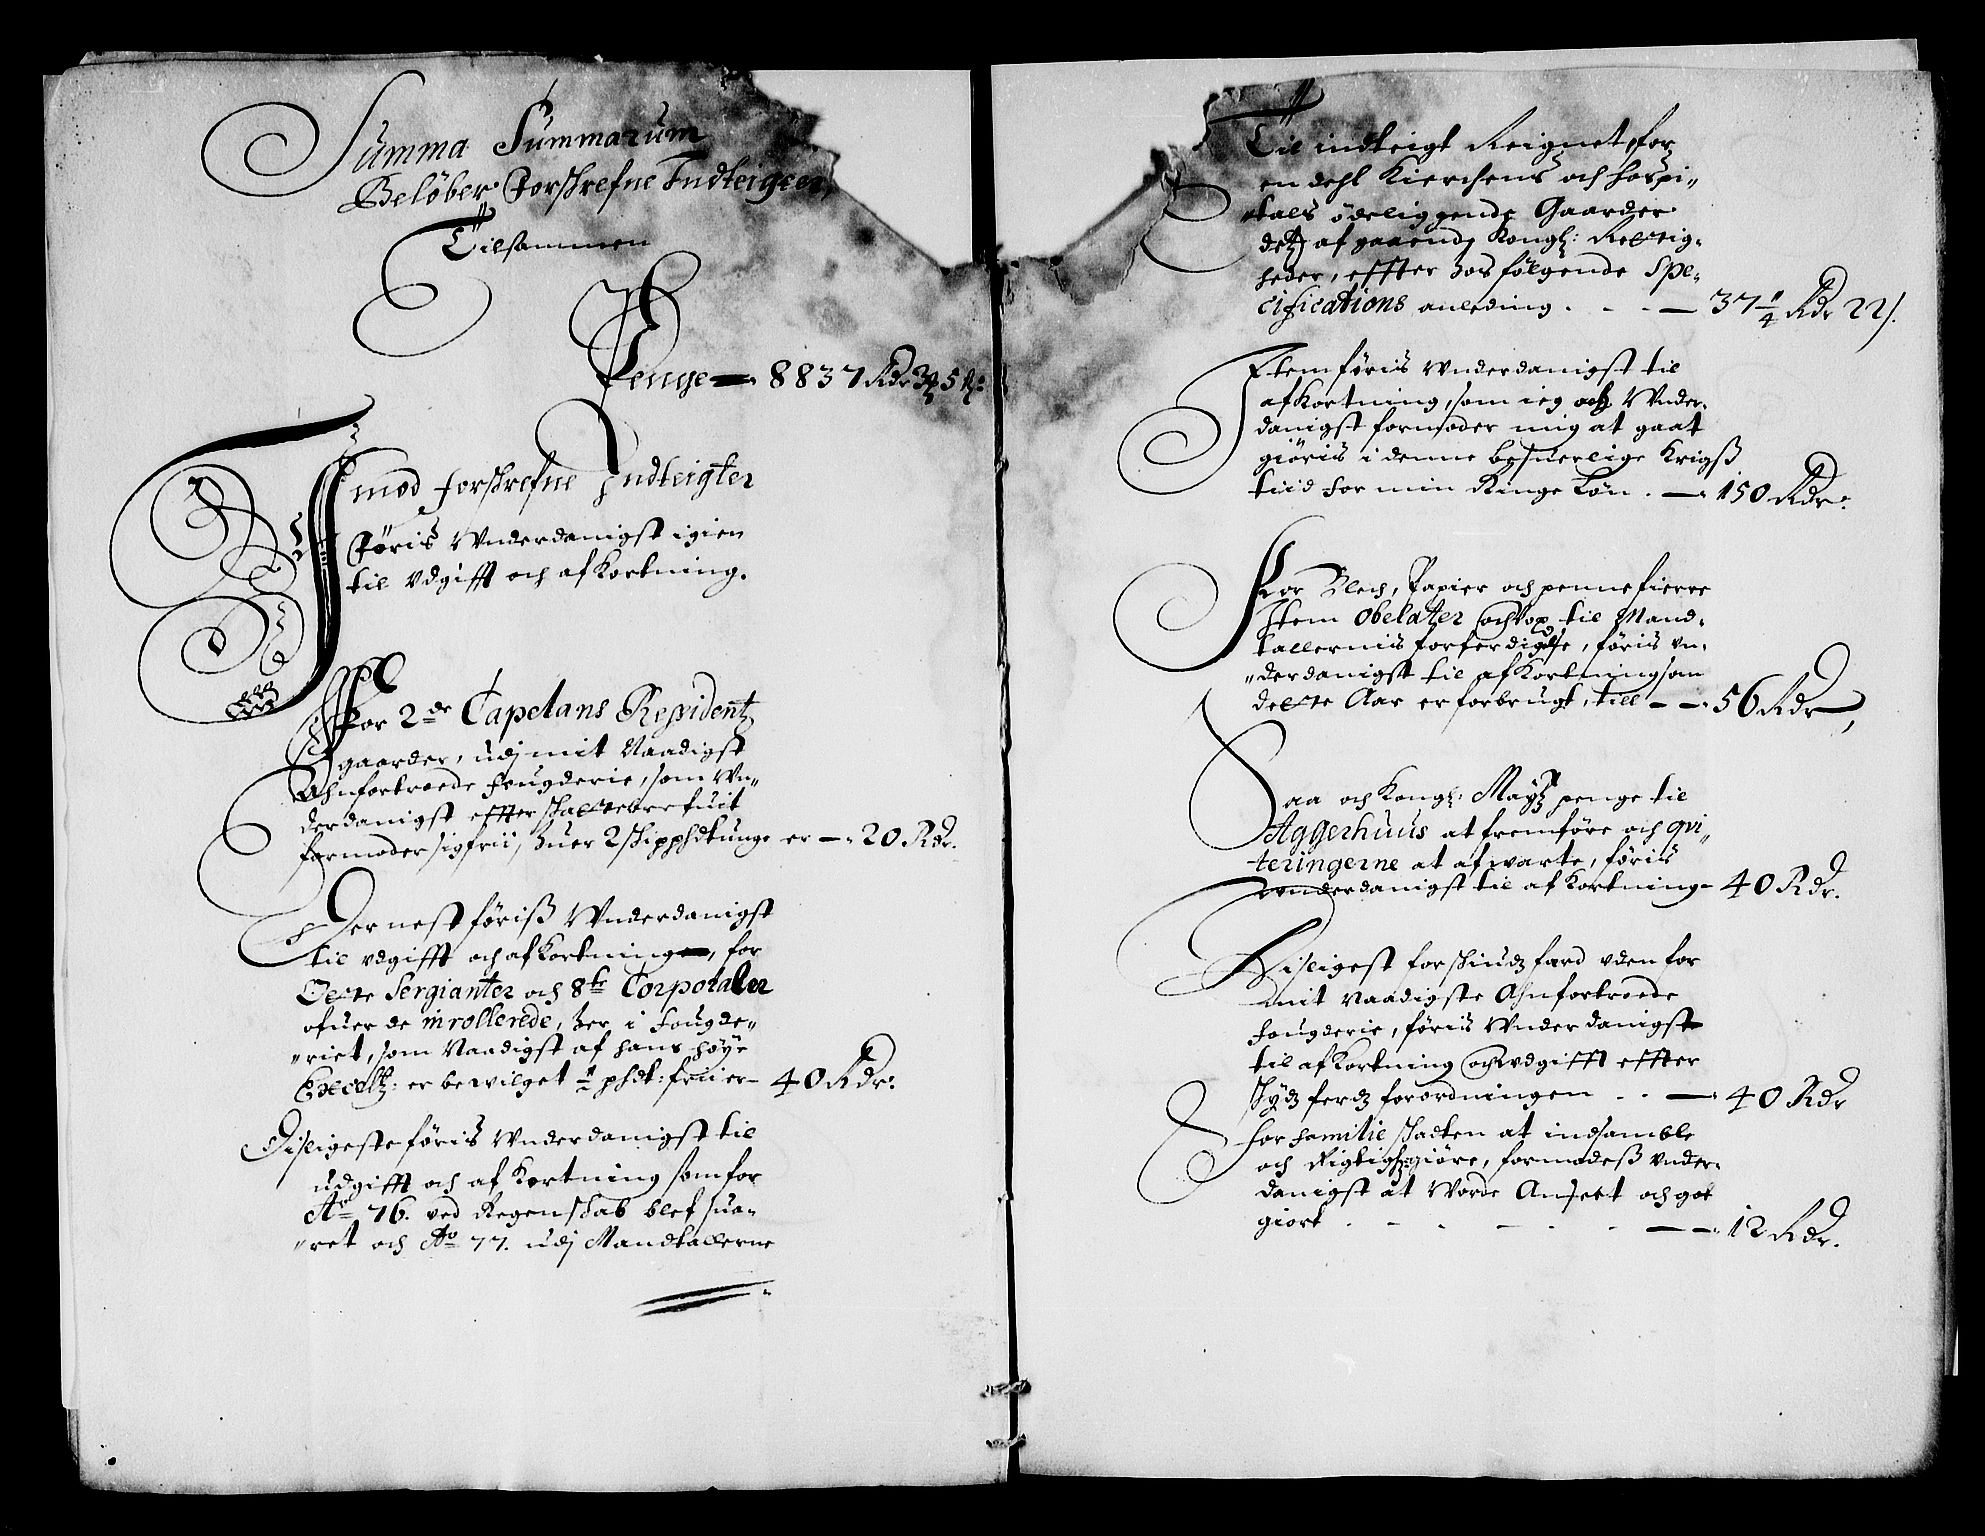 Summa Summarum
Beløber Forschrefne Indteigter
Tilsammen
Penge — 8837 Rdr 3 5
Imod forschrefne Indteigter
Føris Vnderdanigst igien
til vdgifft och afkortning.
For 2de Capelans Residentz
gaarder, udj mit Naadigst
Ahnfortroede fougderie, som Vn„
derdanigst effter
formoder sig frii, huer 2 schippsdtunge er — 20 Rdr.
Dernest føriß Vnderdanigst
til vdgifft och afkortning, for
Sergianter och 8te Corporaler
ofuer de inrollerede, her i fougde„
„riet, som Naadigst af hans høye
Excell: er bewilget 1 phdt: frii er — 40 Rdr:
Disligeste føris Vnderdanigst til
udgifft och afkortning som for
Ao 76. ved Regenschab blef sua„
„ret och Ao 77. udj Mandtallerne
Til indteigt Reignet, for
en dehl Kierchens och hospi„
„tals ødeliggende Gaarder
detz afgaaende Kongl: Rettig„
heder, effter hos følgende Spe„
cifications anleding . . . — 37 1/4 Rdr 22 s.
Item føris Vnderdanigst til
afkortning, som ieg och Vnder„
danigst formoder mig at gaat
giøris i denne besuerlige Krigß
tiid for min Ringe Løn . — 150 Rdr:
For Blech, Papier och pennefierre
Item Obelater och Vox til Mand„
tallernis forferdigelse, føris vn„
„derdanigst til afkortning som
dette Aar er forbrugt, till — 56 Rdr
Saa och Kongl: Maytz penge til
Aggerhuus at fremføre och qvi„
teringerne at afwarte, føris
Vnderdanigst til afkortning — 40 Rdr.
Disligest for schiudtzfard vden for
mit Naadigste Ahnfortroede
fougderie, føris Vnderdanigst
til afkortning och vdgifft effter
schydtzferdtz forordningen . . — 40 Rdr
for familie schatten at indsamble
och Rigtig giøre, formodeß vnder„
danigst at Worde Anseet och got
giort . . . — 12 Rdr.